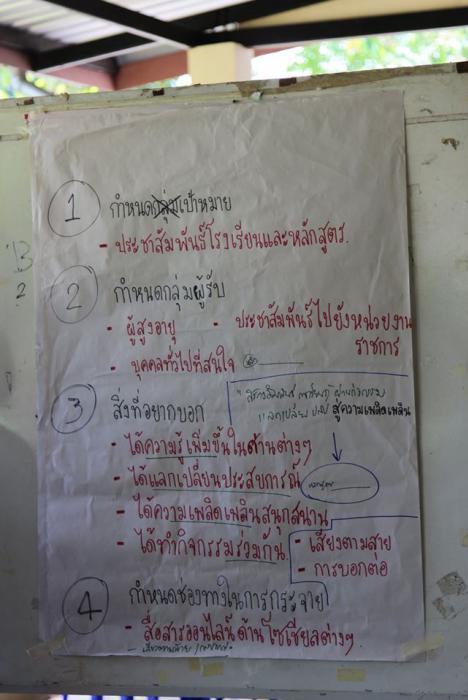 1 กำหนดเป้าหมาย
- ประชาสัมพันธ์โรงเรียนและหลักสูตร.
2 กำหนดกลุ่มผู้รับ
- ผู้สูงอายุ - ประชาสัมพันธ์ไปยังหน่วยงาน
ราชการ
- บุคคลทั่วไปที่สนใจ
3 สิ่งที่อยากบอก
สู่ความเพลิดเพลิน
- ได้ความรู้เพิ่มขึ้นในด้านต่างๆ
- ได้แลกเปลี่ยนประสบการณ์
- ได้ความเพลิดเพลินสนุกสนาน
- ได้ทำกิจกรรมร่วมกัน
- เสียงตามสาย
- การบอกต่อ
4 กำหนดช่องทางในการกระจาย
- สื่อสารออนไลน์ด้านโซเชียลต่างๆ